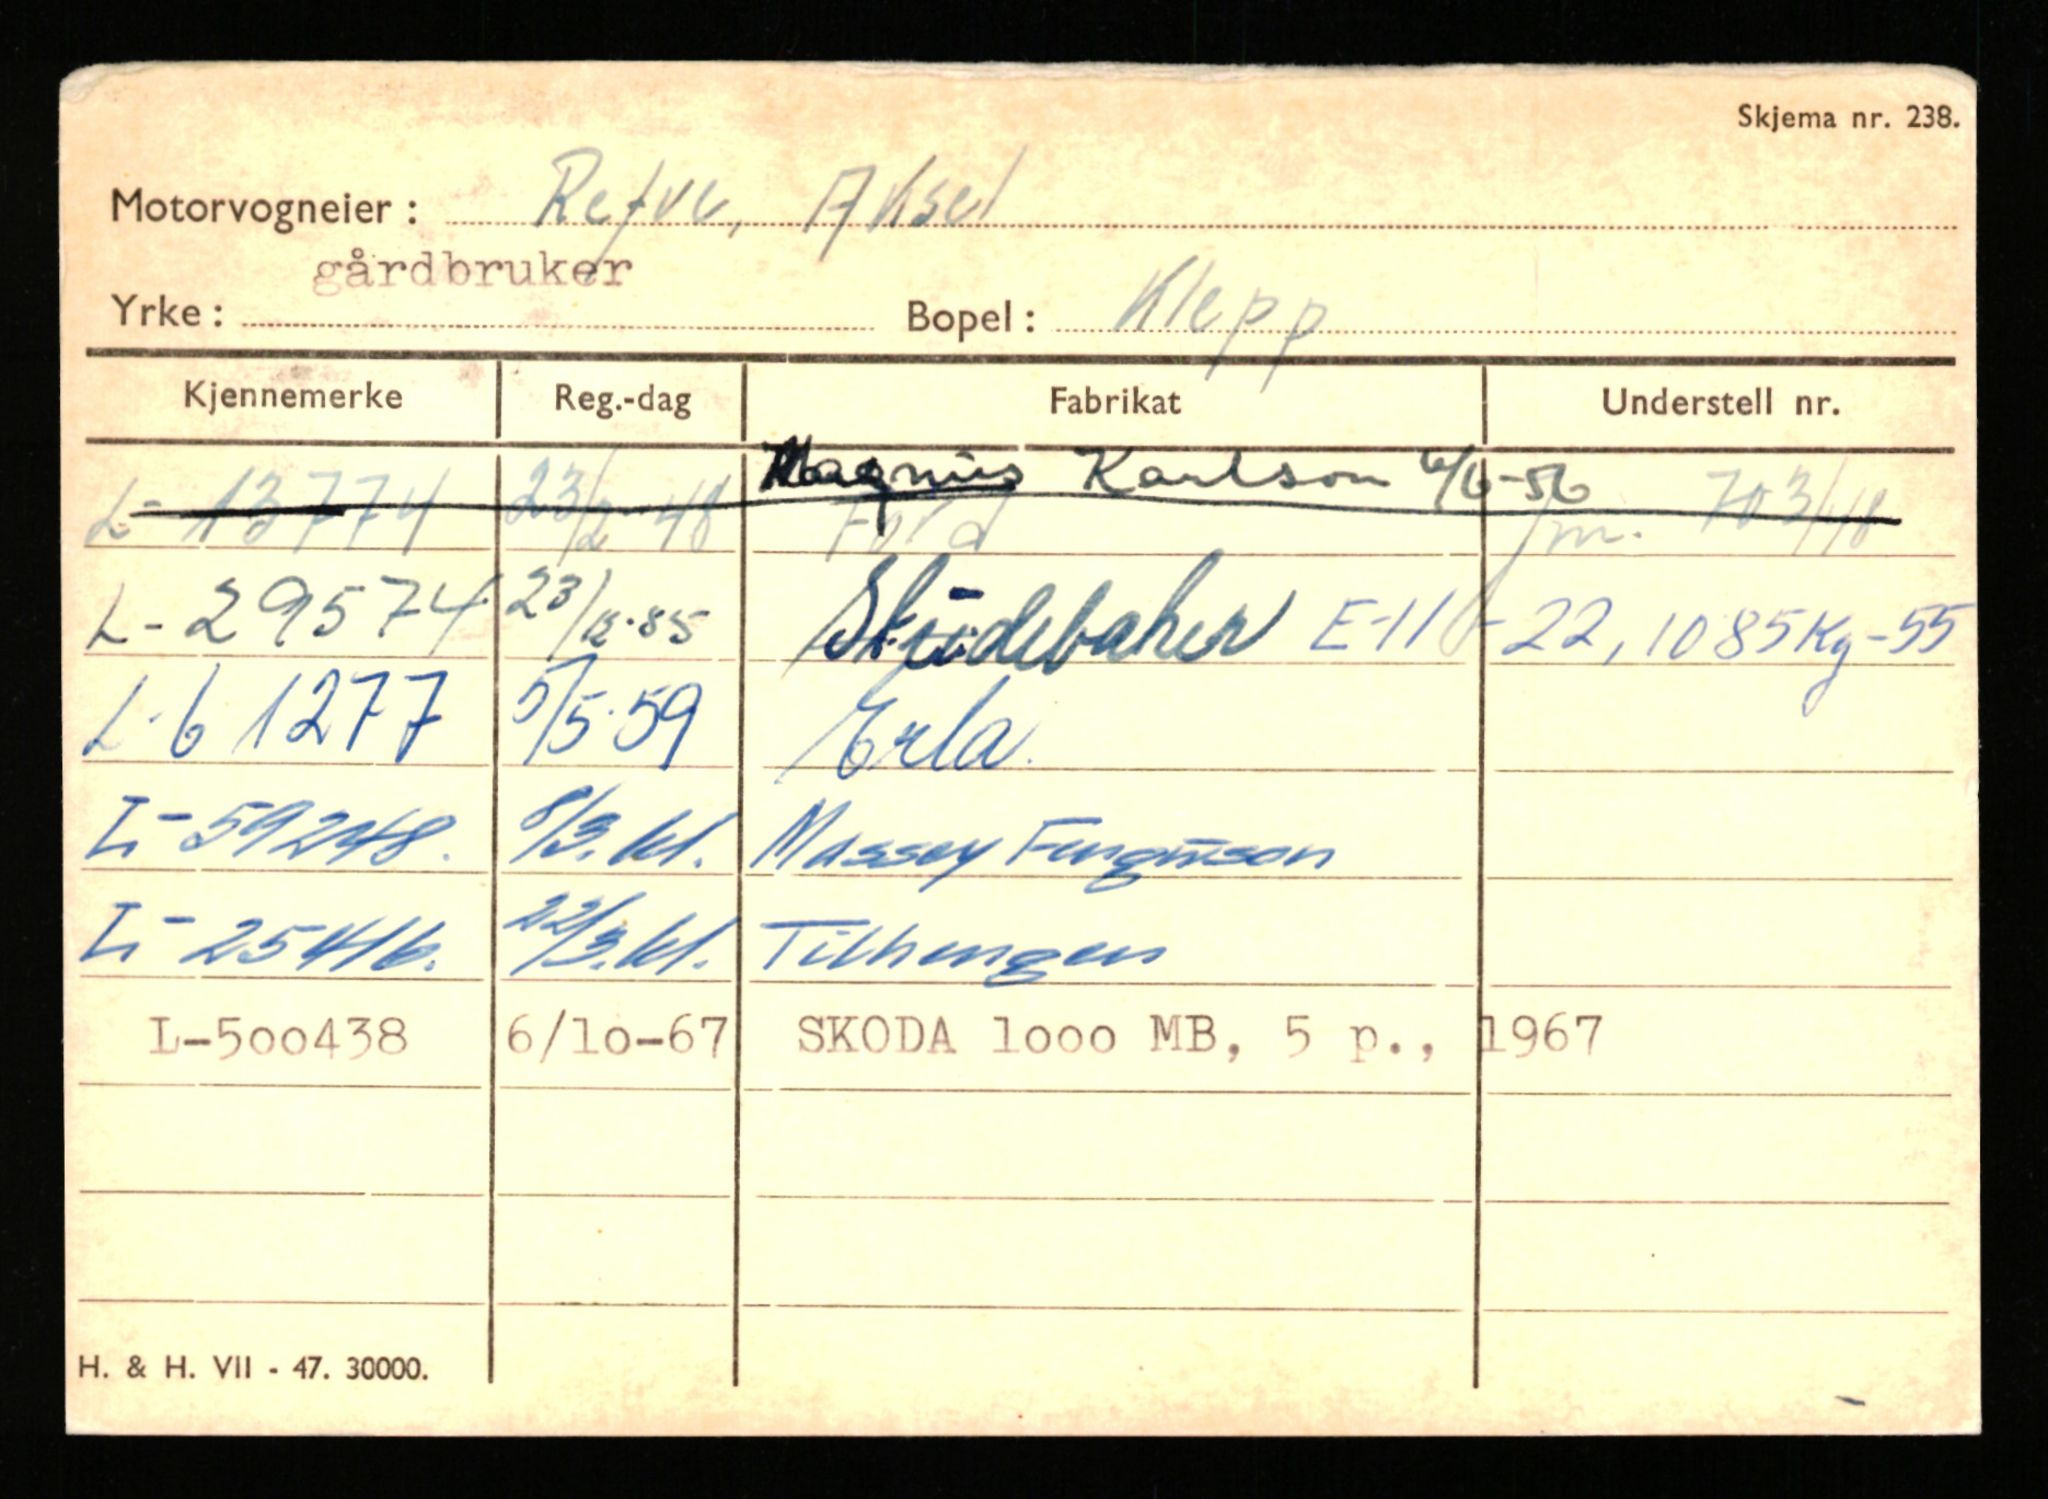 Skjema nr. 238.
Motorvogneier: Refve, Aksel
gårdbruker
Yrke: Bopel: Klepp
Kjennemerke Reg.-dag Fabrikat Understell nr.
Magnus Karlson 6/6-56
L-13774 23/2-48 Ford m. 703/48
L-29574 23/12.55 Studebaker E-11-22, 1085 Kg-55
L-61277 5/5.59 Erla.
L-59248. 8/3.61. Massey Ferguson
L-25416. 22/3.61. Tilhenger
L-500438 6/10-67 SKODA 1000 MB, 5 p., 1967
H. & H. VII - 47. 30000.